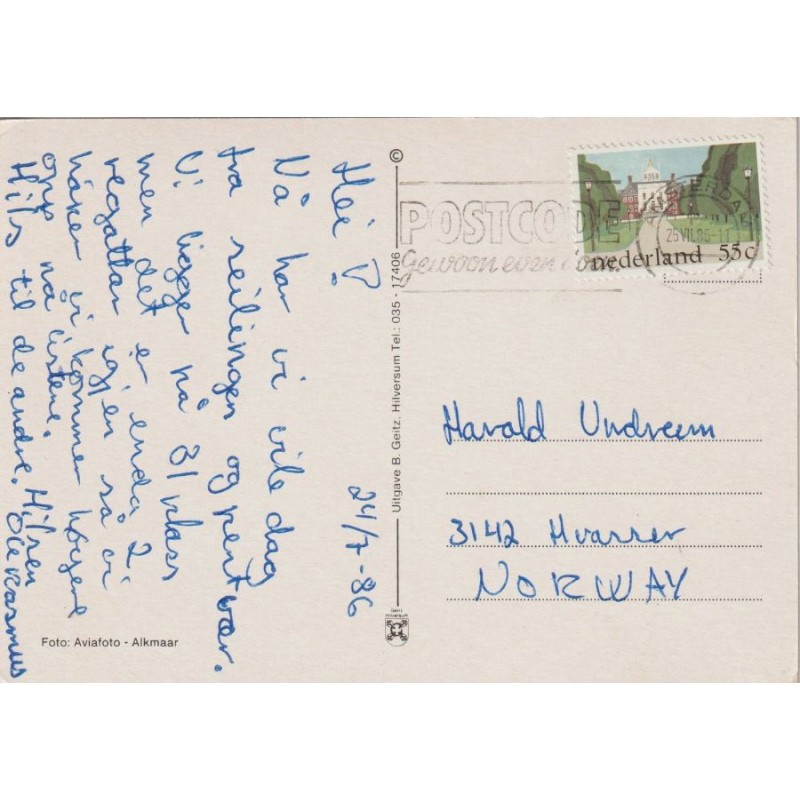 Hei! 24/7-86
Nå har vi vile dag
fra seilingen og pent vær.
Vi ligger på 31 plass
men det er enda 2
regattar igjen så vi
håper vi kommer høyere
opp på listene. Hilsen
Hils til de andre. Ole Rasmus
Foto: Aviafoto - Alkmaar
© Uitgave B. Geitz. Hilversum Tel.: 035 - 17406
POSTCODE
Gewoon even
25 VII.
nederland 55c
Harald Undreem
3142 Hvasser
NORWAY